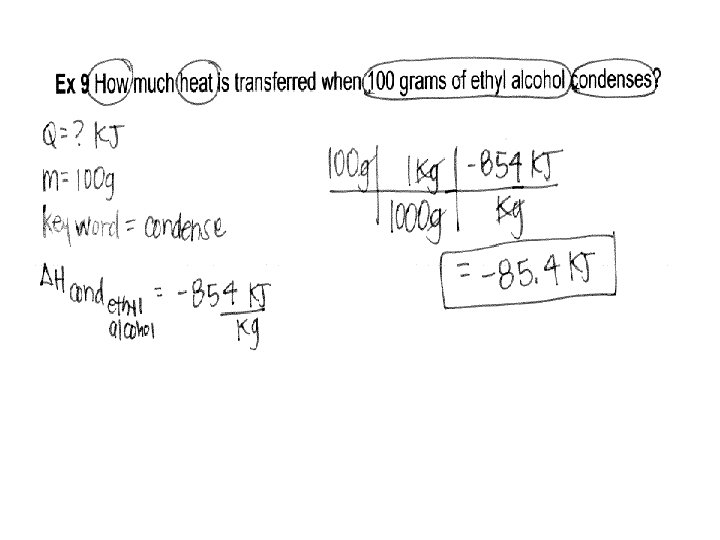 Ex 9 How much heat is transferred when 100 grams of ethyl alcohol condenses?
Q = ? KJ
m = 100g
key word = condense
ΔH cond ethyl alcohol = -854 KJ
Kg
100g | 1Kg | -854 KJ
1000g | Kg
= -85.4 KJ